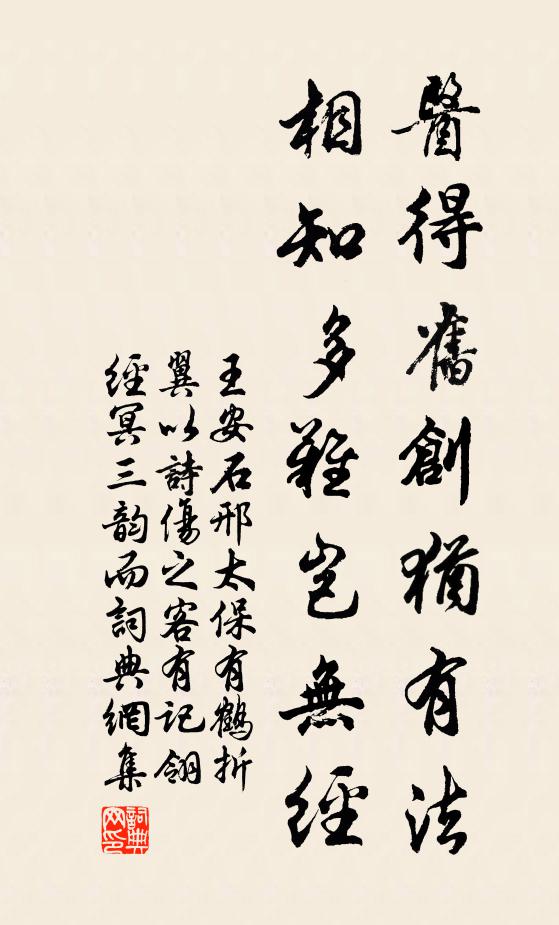 醫得舊創猶有法
相知多難豈無經
王安石邢太保有鶴折
翼以詩傷之客有記翎
經冥三韵而詞典網集
詞典
网印